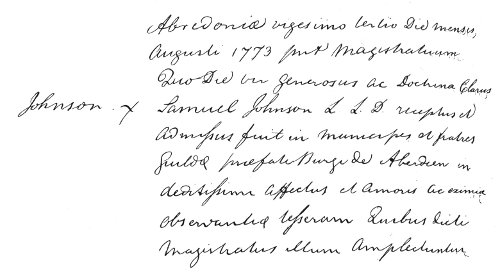 Abredoniæ vigesimo tertio Die mensis,
Augusti 1773 pnt Magistratuum
Quo Die vir generosus ac Doctrina Clarus,
Johnson x Samuel Johnson L L D receptus et
admissus fuit in municipes et fratres
Guildæ præfate Burgi de Aberdeen in
deditissimi affectus et amoris ac eximiæ
observantiæ tesseram Quibus dicti
Magistratus illum Amplectuntur